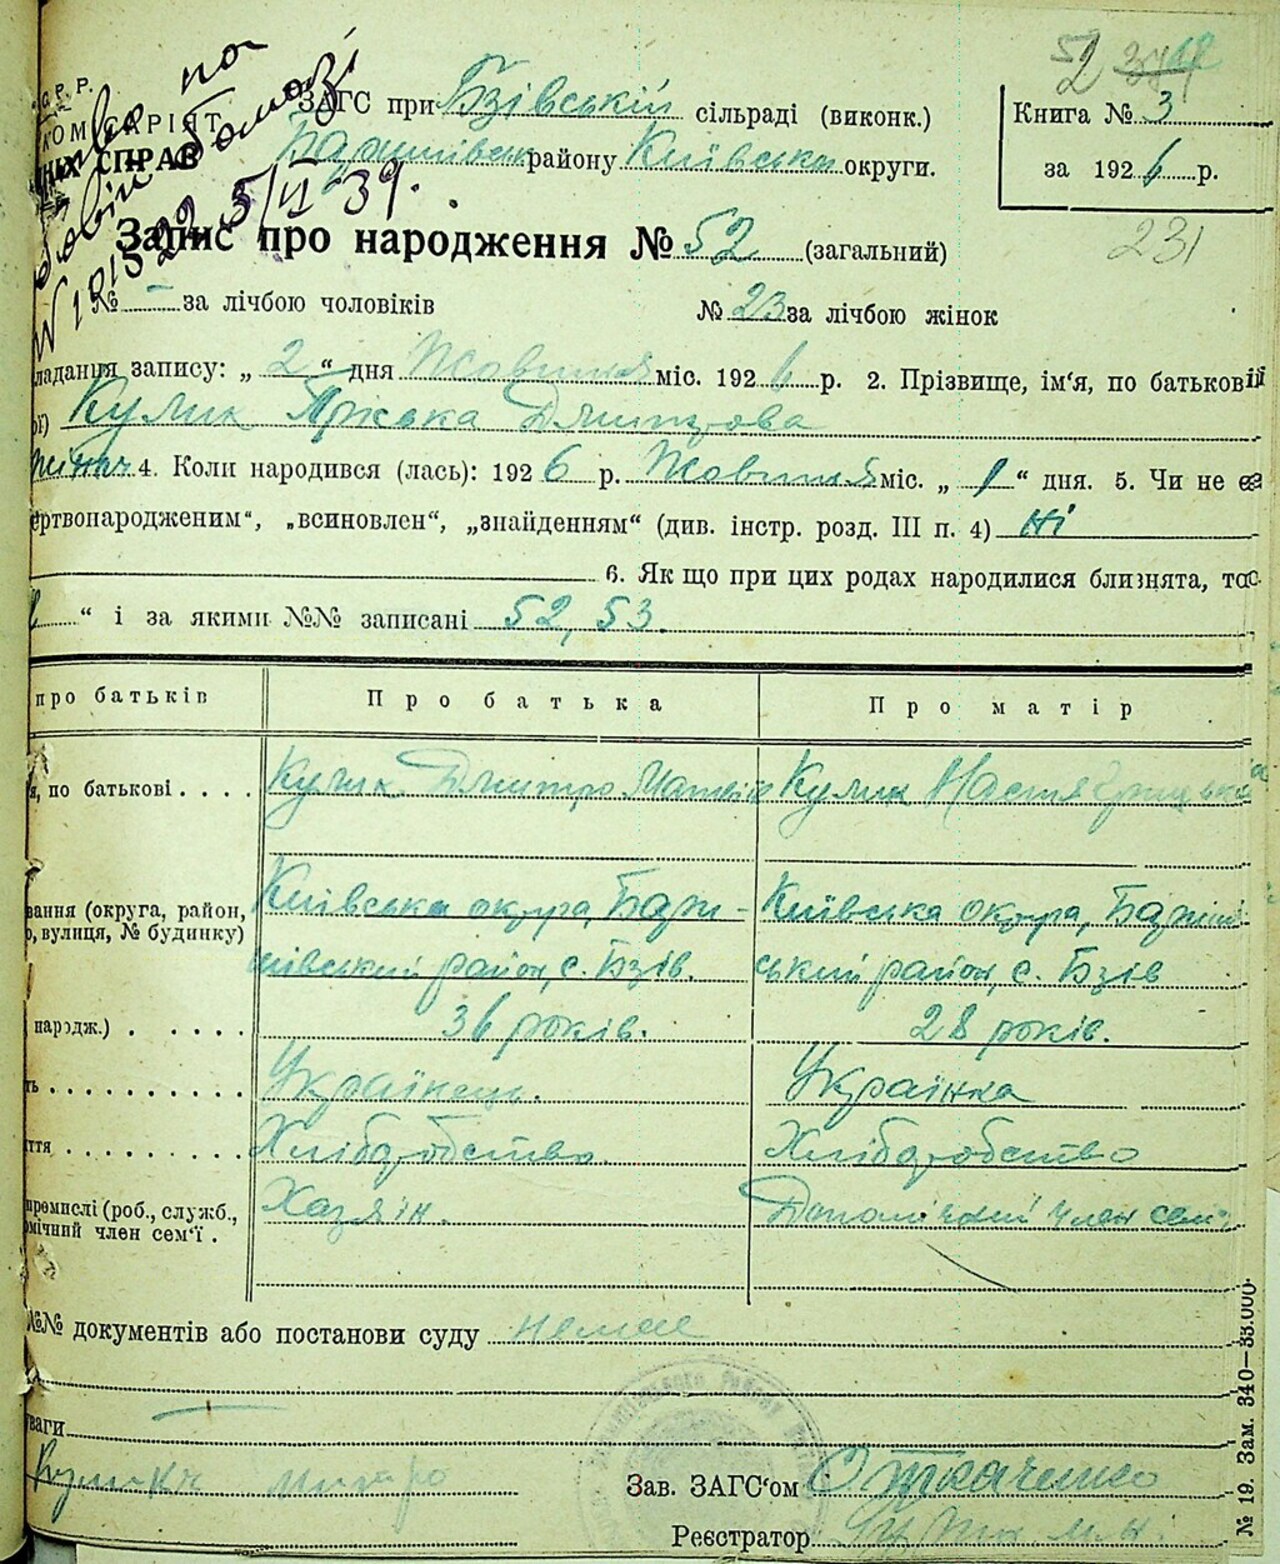 52
Р. Р.
ЗАГС при Бзівській сільраді (виконк.)
Книга № 3
КОМІСАРІЯТ
Баришівськ району Київськи округи.
за 1926 р.
СПРАВ
5/VI 39.
Запис про народження № 52 (загальний)
231
№ – за лічбою чоловіків
№ 23 за лічбою жінок
ладання запису: „ 2 “ дня Жовтня міс. 1926 р. 2. Прізвище, ім'я, по батькові
Кулик Дмитрова
4. Коли народився (лась): 1926 р. Жовтня міс. „ 1 “ дня. 5. Чи не є
ертвонародженим“, „всиновлен“, „знайденням“ (див. інстр. розд. III п. 4) Ні
6. Як що при цих родах народилися близнята, то
“ і за якими №№ записані 52, 53.
про батьків
Про батька
Про матір
я, по батькові . . . .
Кулик Дмитро Матвій
Кулик Настя
вання (округа, район,
о, вулиця, № будинку)
Київська округа, Бари-
шівський район, с. Бзів.
Київська округа, Бариші
ський район, с. Бзів
народж.) . . . . .
36 років.
28 років.
ть . . . . . . . . . .
Українець.
Українка
ття . . . . . . . . .
Хліборобство
Хліборобство
промислі (роб., служб.,
омічний член сем'ї .
Хазяїн.
Допоміжний член сем'ї
№№ документів або постанови суду немає
ваги
Зав. ЗАГС'ом О Ткаченко
Реєстратор
№ 19. Зам. 340—33.000.